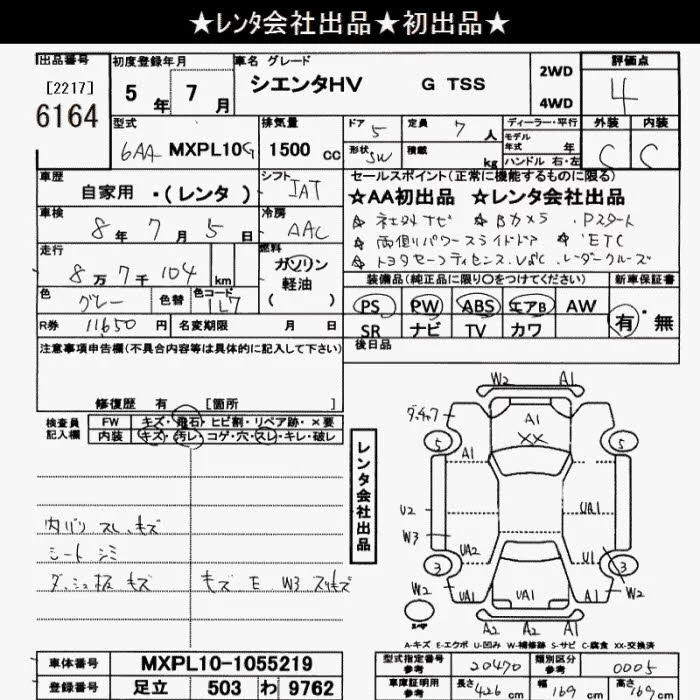 ★レンタ会社出品★初出品★
出品番号 初度登録年月 車名 グレード 評価点
[2217]
6164
5年 7月
シエンタHV G TSS
2WD
4WD
4
型式 排気量 ドア 定員 ディーラー・平行 外装 内装
6AA MXPL10G 1500 cc
5 7人
モデル年式 年
形状 SW 積載 kg ハンドル 右・左
C C
車歴 シフト セールスポイント(正常に機能するものに限る)
自家用 ・(レンタ) IAT
☆AA初出品 ☆レンタ会社出品
車検 冷房
8年 7月 5日 AAC
☆ 社外ナビ ☆ Bカメラ . Pスタート
☆ 両側パワースライドドア ☆ ETC
☆ トヨタセーフティセンス. レーダークルーズ
走行 燃料
8万7千104 km ガソリン
軽油
( )
色 色替 色コード
グレー 1L7
装備品(純正品に限り○をつけてください) 新車保証書
PS PW ABS エアB AW
SR ナビ TV カワ
有・無
R券 11650 円 名変期限 月 日
後日品
注意事項申告欄(不具合内容等は具体的に記入して下さい)
修復歴 有 [箇所 ]
検査員記入欄
FW キズ・飛石・ヒビ割・リペア跡・×要
内装 キズ・汚レ・コゲ・穴・スレ・キレ・破レ
内バリ スレ、キズ
シート シミ
ダッシュ板 キズ
キズ E W3 スリキズ
レンタ会社出品
W2 A1
A1
XX
5 5
A1
U2
W3
UA1
UA2 U1
3 3
W2 W2
UA1 UA1 UA1
A2 A2 A1
A-キズ E-エクボ U-凹み W-補修跡 S-サビ C-腐食 XX-交換済
車体番号 MXPL10-1055219
型式指定番号参考 20470 類別区分参考 0005
登録番号 足立 503 わ 9762
車庫証明用参考 長さ 426 cm 幅 169 cm 高さ 169 cm